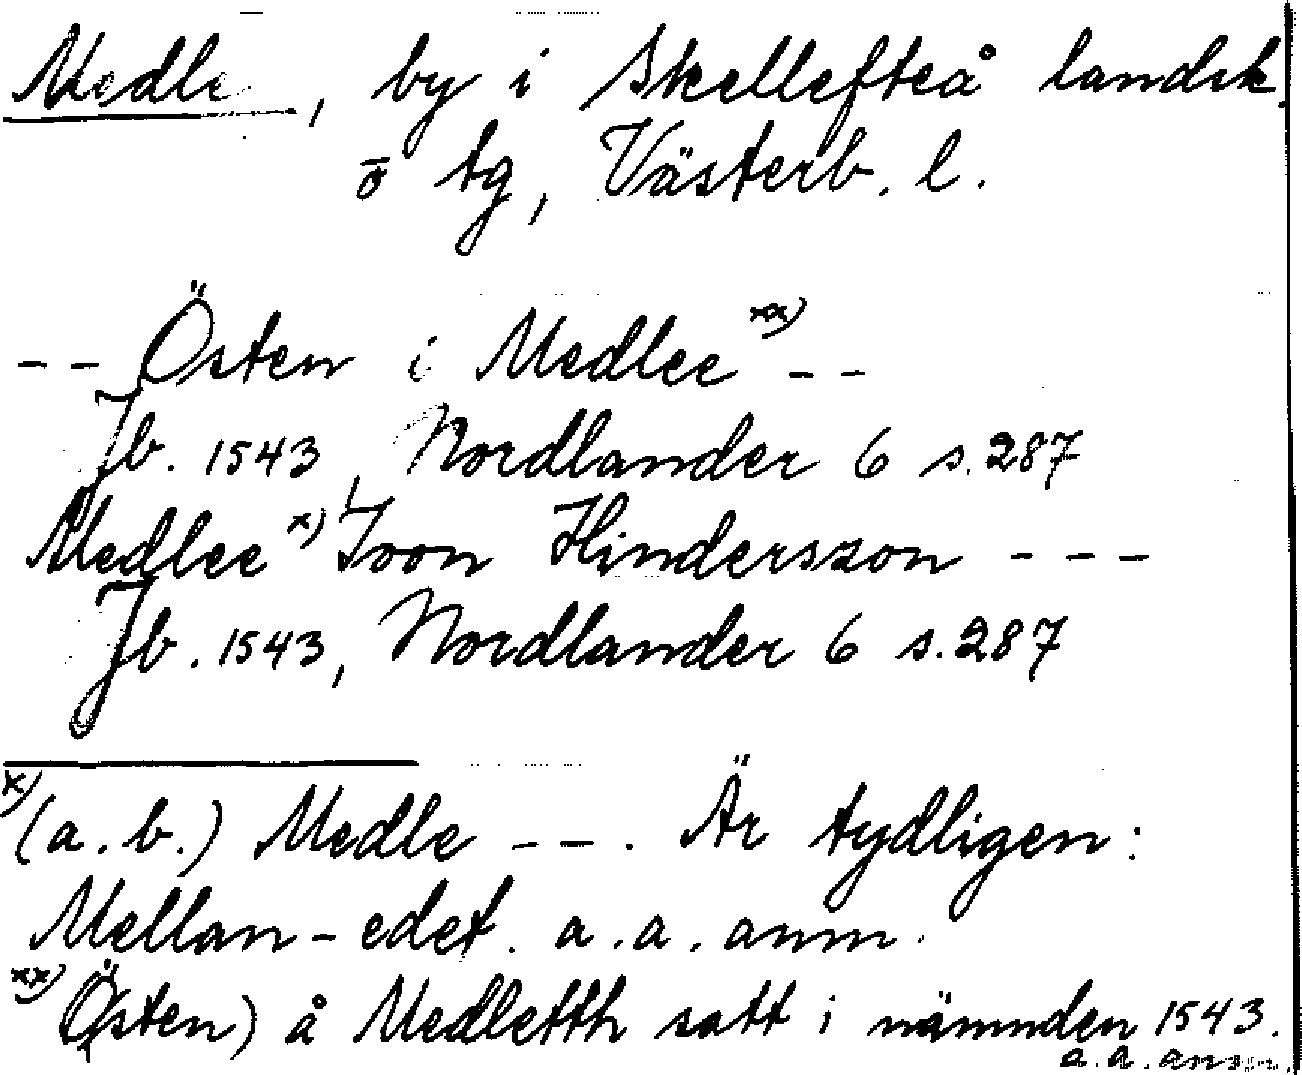 Medle, by i Skellefteå landsk.
o tg, Västerb. l.
-- Östen i Medlee xx) --
Jb. 1543, Nordlander 6 s. 287
Medlee x) Joon Hinderszon ---
Jb. 1543, Nordlander 6 s. 287
x) (a. b.) Medle --- . Är tydligen:
Mellan-edet. a. a. anm.
xx) Östen) å Medletth satt i nämnden 1543.
a. a. anm.